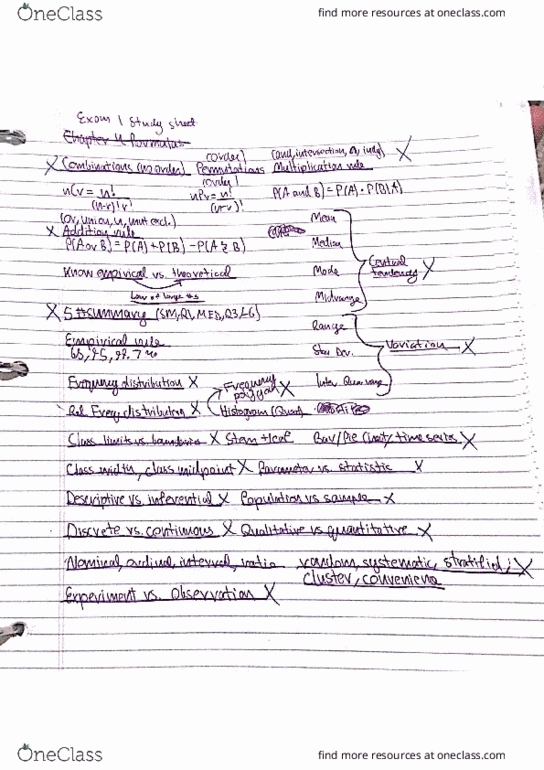 OneClass
find more resources at oneclass.com
Exam 1 Study sheet
Chapter 4 Formulas
(order) (and, intersection, ∩, indp)
X Combinations (no order) Permutations Multiplication rule X
(order)
nCr = n! nPr = n! P(A and B) = P(A) · P(B|A)
(n-r)! r! (n-r)!
(or, union, u, mut excl.)
X Addition rule
P(A or B) = P(A) + P(B) - P(A & B)
Mean
Median
Mode
Midrange
Central tendency X
Know empirical vs. theoretical
Law of large #s
X 5 # summary (SM, Q1, MED, Q3, LG)
Range
Stan Dev.
Variation X
Empirical rule
68, 95, 99.7 %
Frequency distribution X
Frequency polygon X
Inter Quar range
Rel. Freq. distribution X
Histogram (Quan)
Class limits vs. boundaries X Stem + leaf Bar/Pie (Qual)/time series X
Class width, class midpoint X Parameter vs. statistic X
Descriptive vs. inferential X Population vs sample X
Discrete vs. continuous X Qualitative vs quantitative X
Nominal, ordinal, interval, ratio random, systematic, stratified, X
cluster, convenience
Experiment vs. Observation X
OneClass
find more resources at oneclass.com